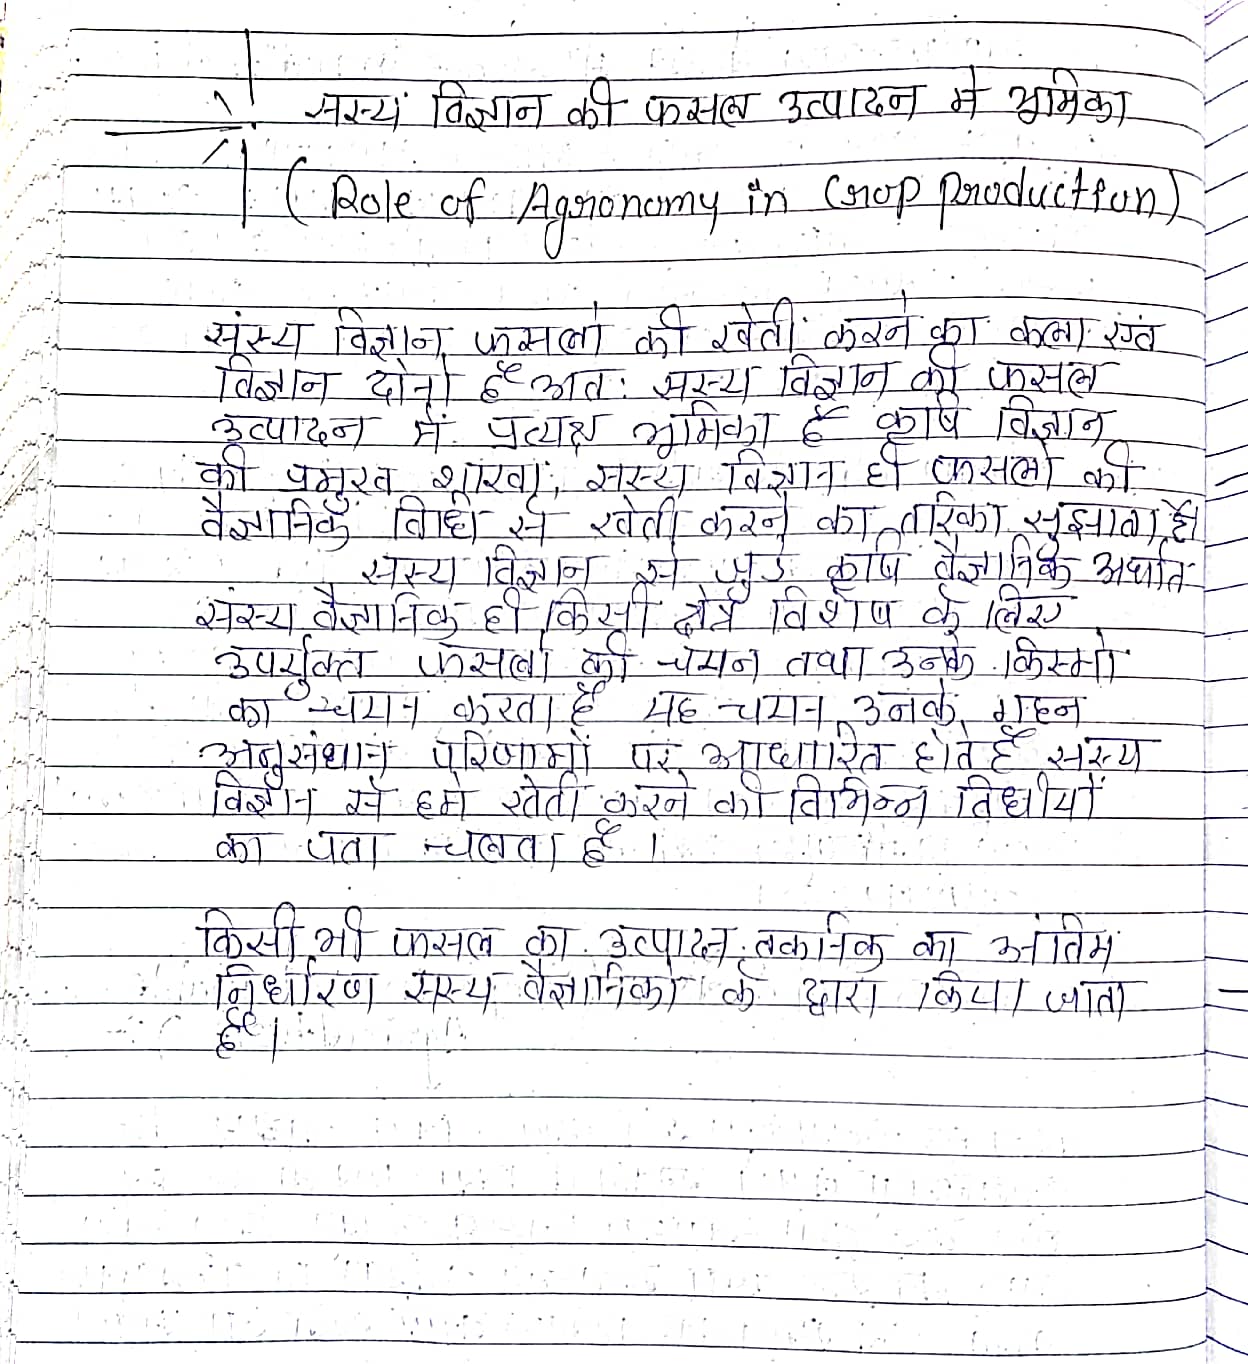 सस्य विज्ञान की फसल उत्पादन में भूमिका
( Role of Agronomy in Crop Production )
संस्य विज्ञान फसलो की खेती करने का कला एंव
विज्ञान दोनो है अतः सस्य विज्ञान की फसल
उत्पादन में प्रत्यक्ष भूमिका है कृषि विज्ञान
की प्रमुख शाखा, सस्य विज्ञान ही फसलो की
वैज्ञानिक विधि से खेती करने का तरिका सुझाता है।
सस्य विज्ञान से जुडे कृषि वैज्ञानिक अर्थात
संस्य वैज्ञानिक ही किसी क्षेत्र विशेष के लिए
उपर्युक्त फसलो की चयन तथा उनके किस्मो
का चयन करता है यह चयन उनके गहन
अनुसंधान परिणामों पर आधारित होते है सस्य
विज्ञान से हमे खेती करने की विभिन्न विधीयों
का पता चलता है ।
किसी भी फसल का उत्पादन तकनिक का अंतिम
निर्धारण सस्य वैज्ञानिको के द्वारा किया जाता
है।